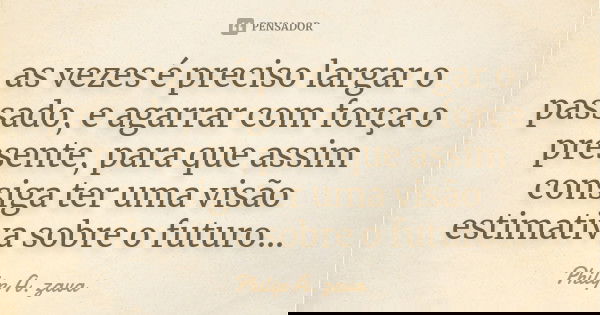 PENSADOR
as vezes é preciso largar o
passado, e agarrar com força o
presente, para que assim
consiga ter uma visão
estimativa sobre o futuro...
Philip A. zava